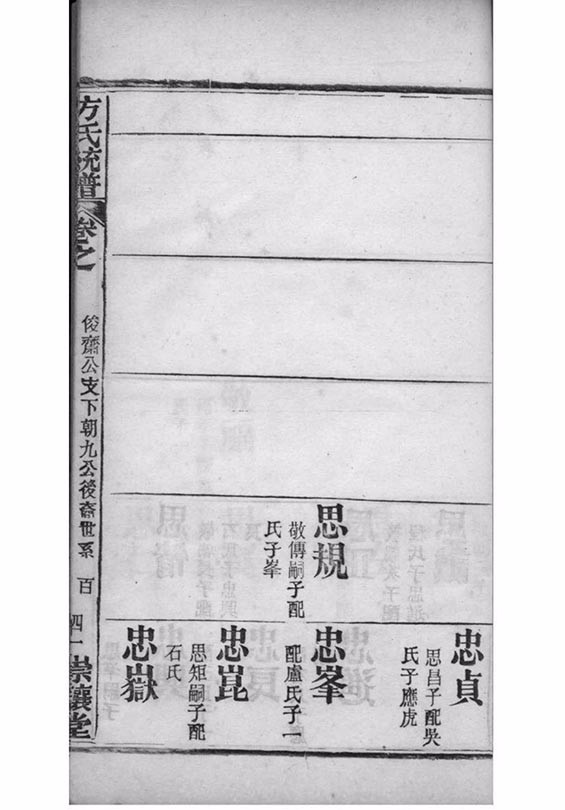 思規
敬傳嗣子配
氏子峯
忠貞
思昌子配吳
氏子應虎
忠峯
配盧氏子一
忠崑
思矩嗣子配
石氏
忠嶽
方氏統譜
卷之
俊齋公支下朝九公後裔世系
百
四一
崇讓堂